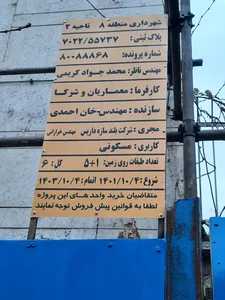 شهرداری منطقه ۸ ناحیه ۲
پلاک ثبتی: ۷۰۲۲/۵۵۷۳۷
شماره پرونده: ۸۰۰۸۸۸۶۸
مهندس ناظر: محمد جواد کریمی
کارفرما: معماریان و شرکا
سازنده: مهندس-خان احمدی
مجری: شرکت بلند سازه داریس مهندس
کاربری: مسکونی
تعداد طبقات روی زمین: ۱+۵ کل: ۶
شروع: ۱۴۰۱/۱۰/۴ اتمام: ۱۴۰۳/۱۰/۴
متقاضیان خرید واحدهای این پروژه
لطفا به قوانین پیش فروش توجه نمایند